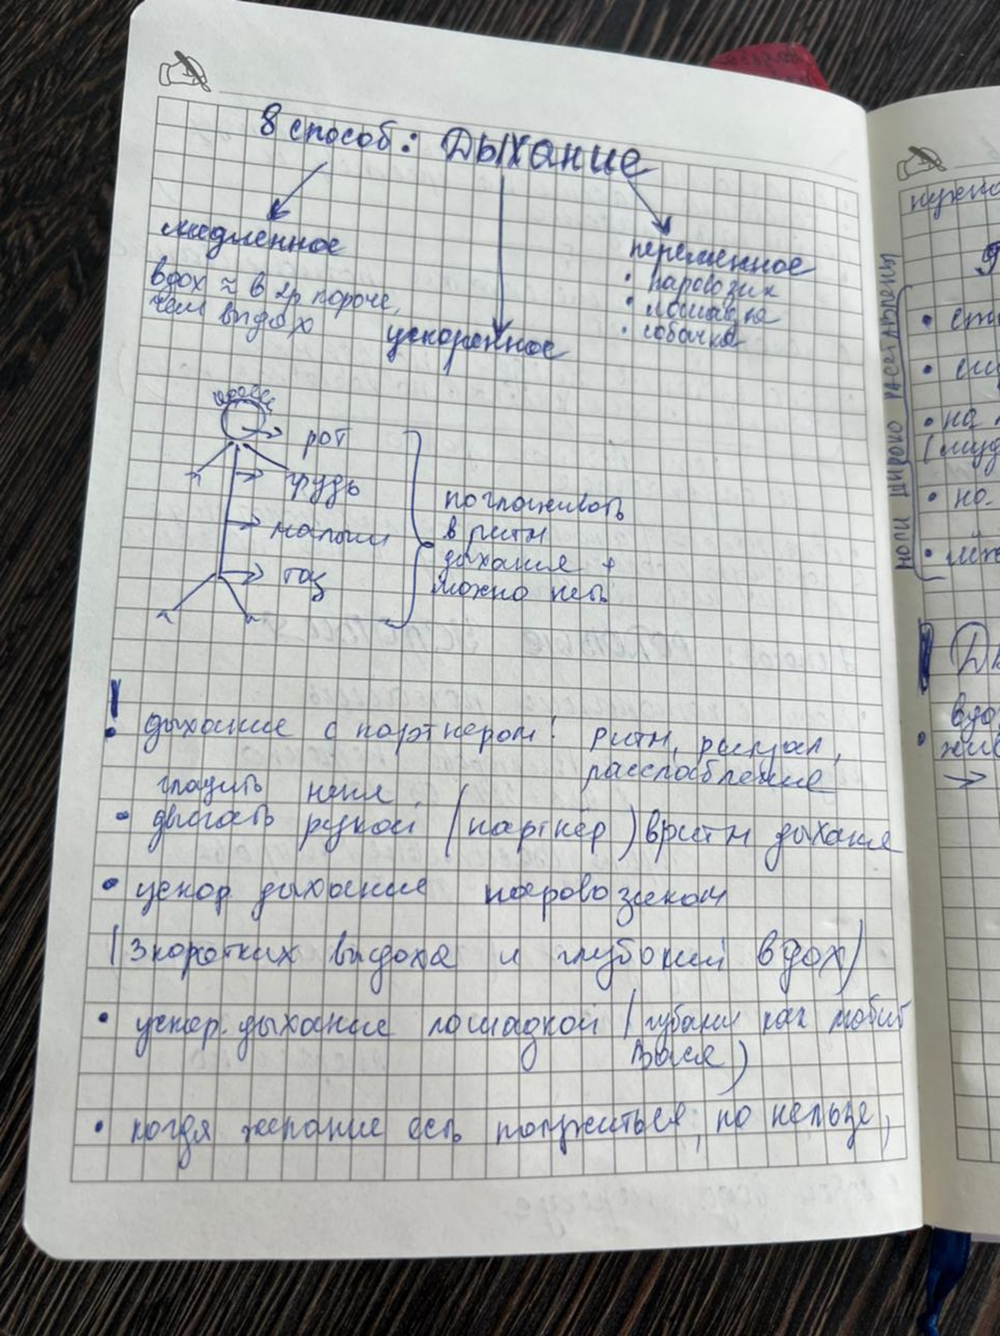 8 способ: Дыхание
медленное
вдох ≈ в 2р короче,
чем выдох
ускоренное
переменное
• паровозик
• лошадка
• собачка
рот
грудь
таз
поглаживать
в ритм
дыхания +
можно петь
! дыхание с партнером: ритм,
расслабление
гладить меня
• двигать рукой (партнёр) в ритм дыхания
• ускор дыхание паровозиком
(3 коротких выдоха и глубокий вдох)
• ускор. дыхание лошадкой (губами как любит
Вася)
• когда желание есть потужиться, но нельзя,
нужно
ноги широко расставлены
• на
• на
! Ды
вдо
• жив
→